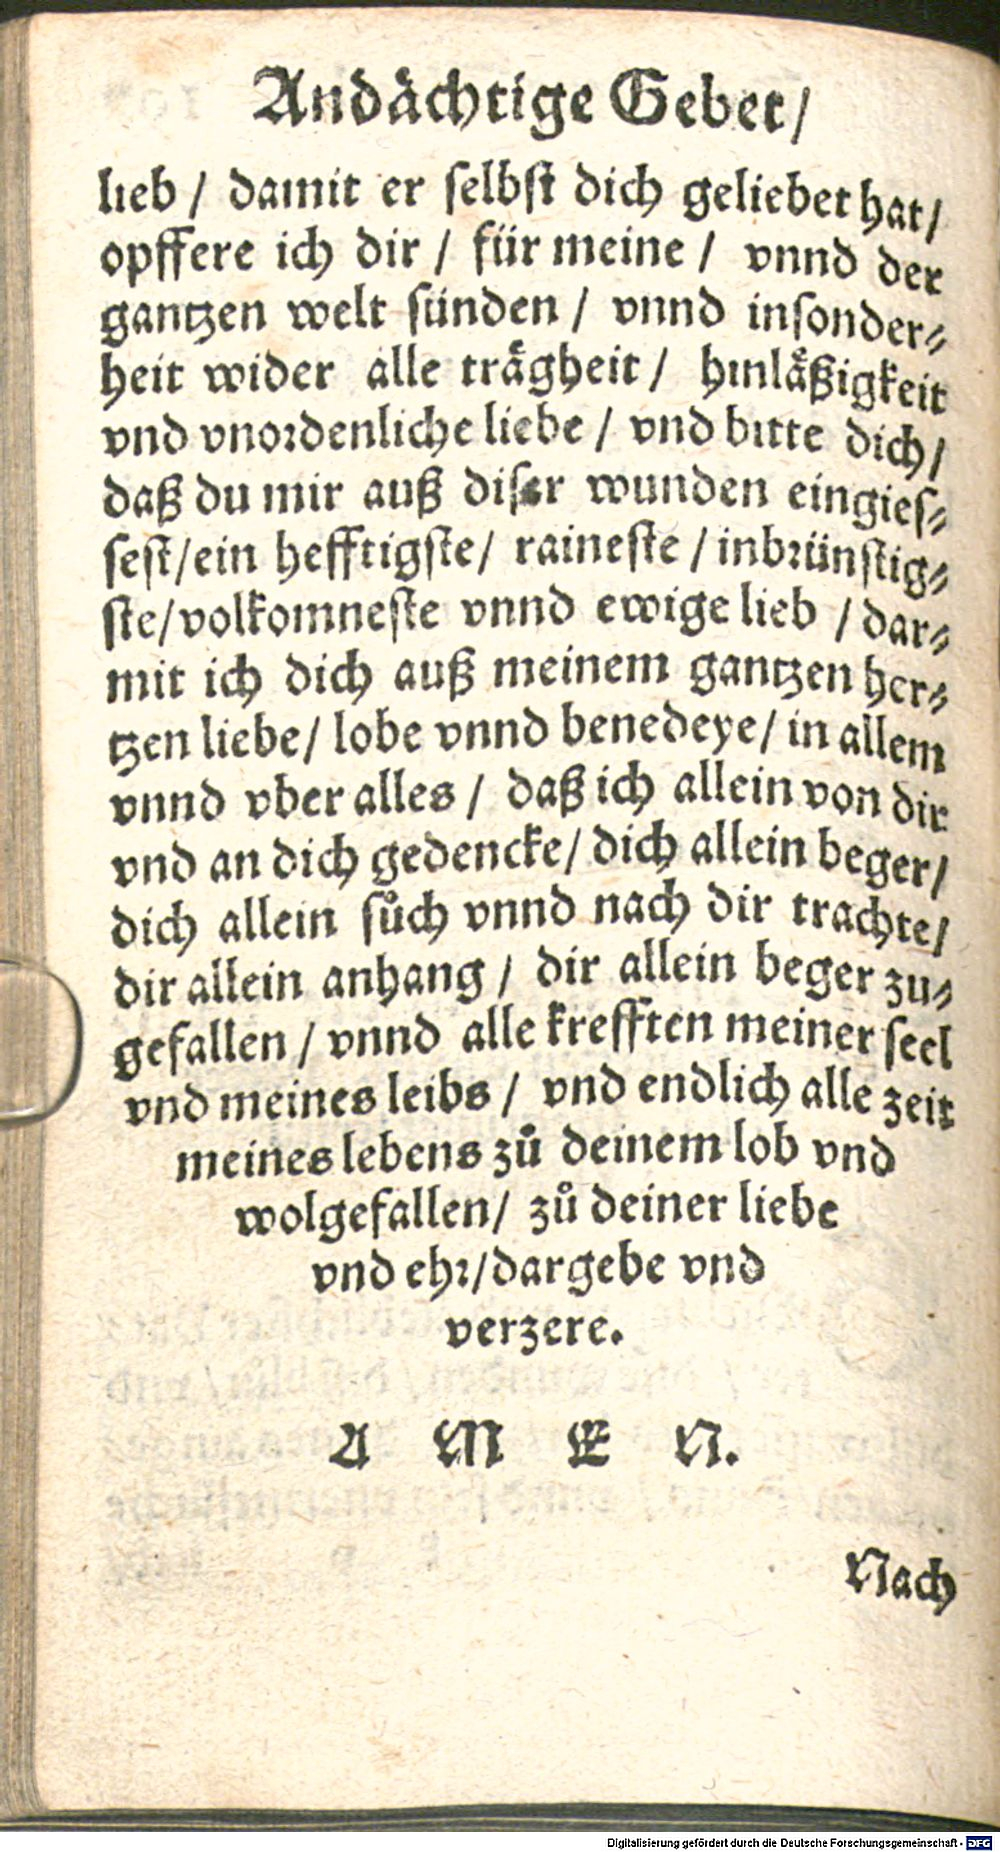 Andaͤchtige Gebet/
lieb / damit er ſelbſt dich geliebet hat/
opffere ich dir / fuͤr meine / vnnd der
gantzen welt ſuͤnden / vnnd inſonder⸗
heit wider alle traͤgheit / hinlaͤßigkeit
vnd vnoꝛdenliche liebe / vnd bitte dich/
daß du mir auß diſer wunden eingieſ⸗
ſeſt/ein hefftigſte/ raineſte / inbꝛuͤnſtig⸗
ſte/volkomneſte vnnd ewige lieb / dar⸗
mit ich dich auß meinem gantzen her⸗
tzen liebe/ lobe vnnd benedeye/ in allem
vnnd vber alles / daß ich allein von dir
vnd an dich gedencke/ dich allein beger/
dich allein ſuͦch vnnd nach dir trachte/
dir allein anhang / dir allein beger zu⸗
gefallen / vnnd alle krefften meiner ſeel
vnd meines leibs / vnd endlich alle zeit
meines lebens zuͦ deinem lob vnd
wolgefallen/ zuͦ deiner liebe
vnd ehꝛ/dargebe vnd
verzere.
A M E N.
Nach
Digitalisierung gefördert durch die Deutsche Forschungsgemeinschaft - DFG